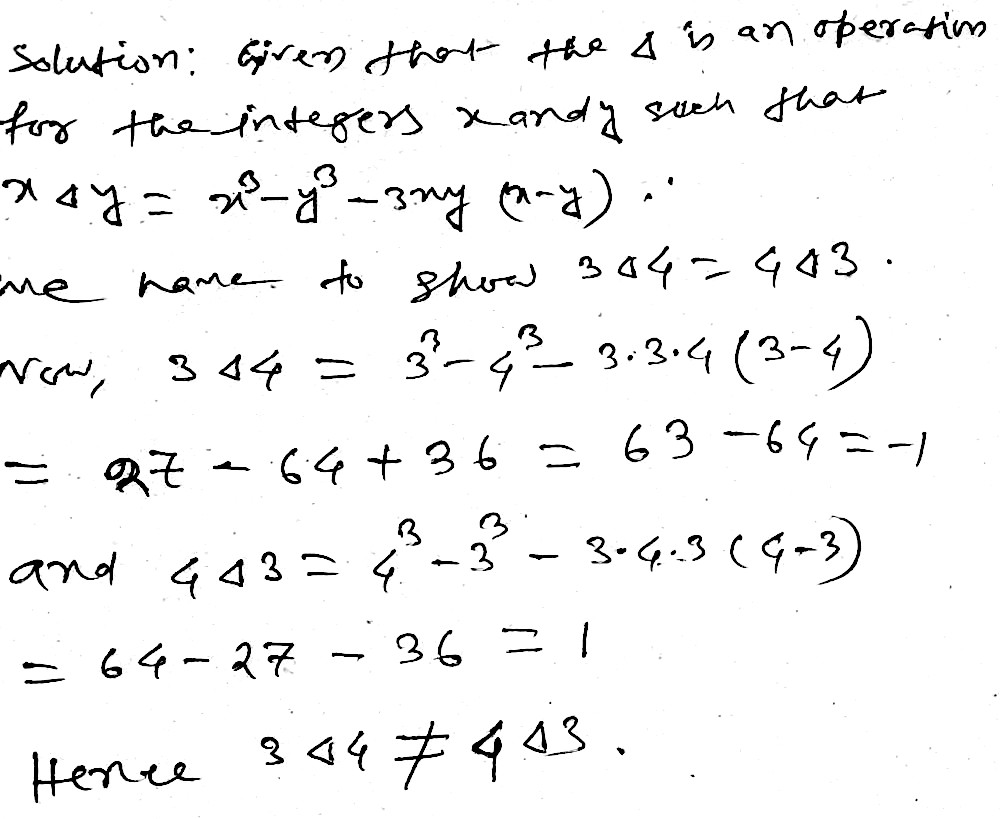 Solution: Given that the Δ is an operation
for the integers x and y such that
x Δ y = x³ - y³ - 3xy (x-y).
we have to show 3 Δ 4 = 4 Δ 3.
Now, 3 Δ 4 = 3³ - 4³ - 3.3.4 (3-4)
= 27 - 64 + 36 = 63 - 64 = -1
and 4 Δ 3 = 4³ - 3³ - 3.4.3 (4-3)
= 64 - 27 - 36 = 1
Hence 3 Δ 4 ≠ 4 Δ 3.